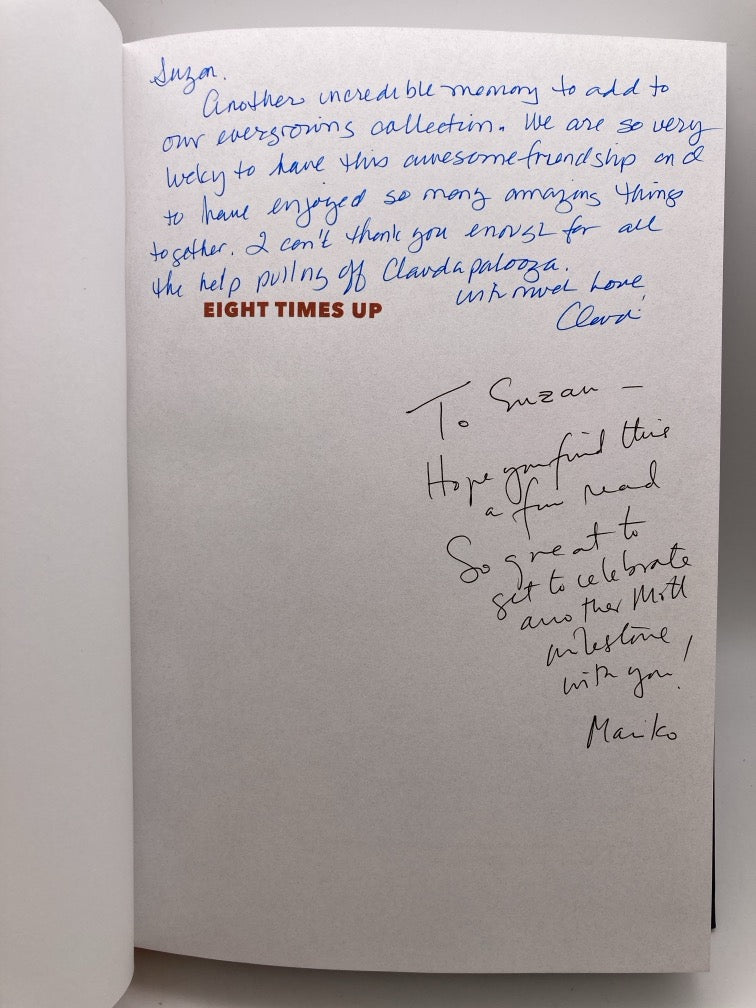 Suzan.
Another incredible memory to add to
our evergrowing collection. We are so very
lucky to have this awesome friendship and
to have enjoyed so many amazing things
together. I can't thank you enough for all
the help pulling off Claudapalooza.
with much Love,
EIGHT TIMES UP
Claudi
To Suzan —
Hope you find this
a fun read
So great to
get to celebrate
another Mott
milestone
with you!
Mariko